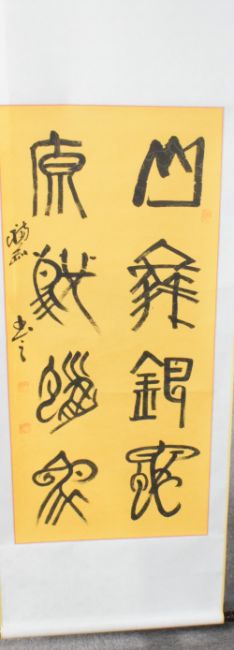 山舞銀蛇
原馳蠟象
書之